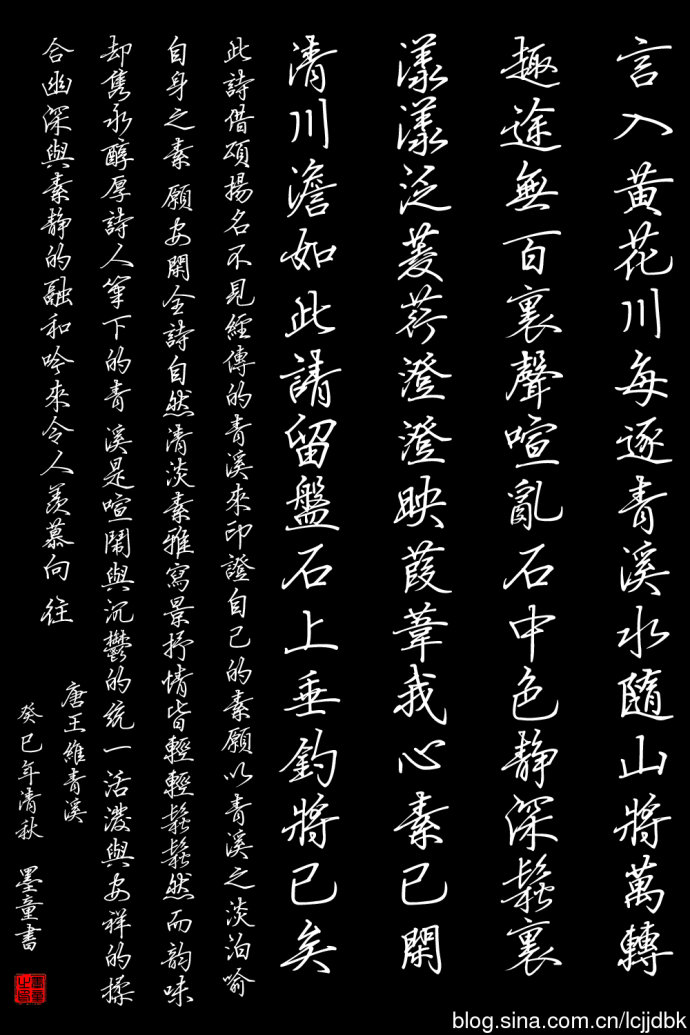 言入黃花川每逐青溪水隨山將萬轉
趣途無百裏聲喧亂石中色靜深鬆裏
漾漾泛菱荇澄澄映葭葦我心素已閑
清川澹如此請留盤石上垂釣將已矣
此詩借頌揚名不見經傳的青溪來印證自己的素願以青溪之淡泊喻
自身之素願安閑全詩自然清淡素雅寫景抒情皆輕輕鬆鬆然而韵味
却雋永醇厚詩人筆下的青溪是喧鬧與沉鬱的統一活潑與安祥的揉
合幽深與素静的融和吟來令人羨慕向往
唐王維青溪
癸巳年清秋 墨童書
blog.sina.com.cn/lcjjdbk